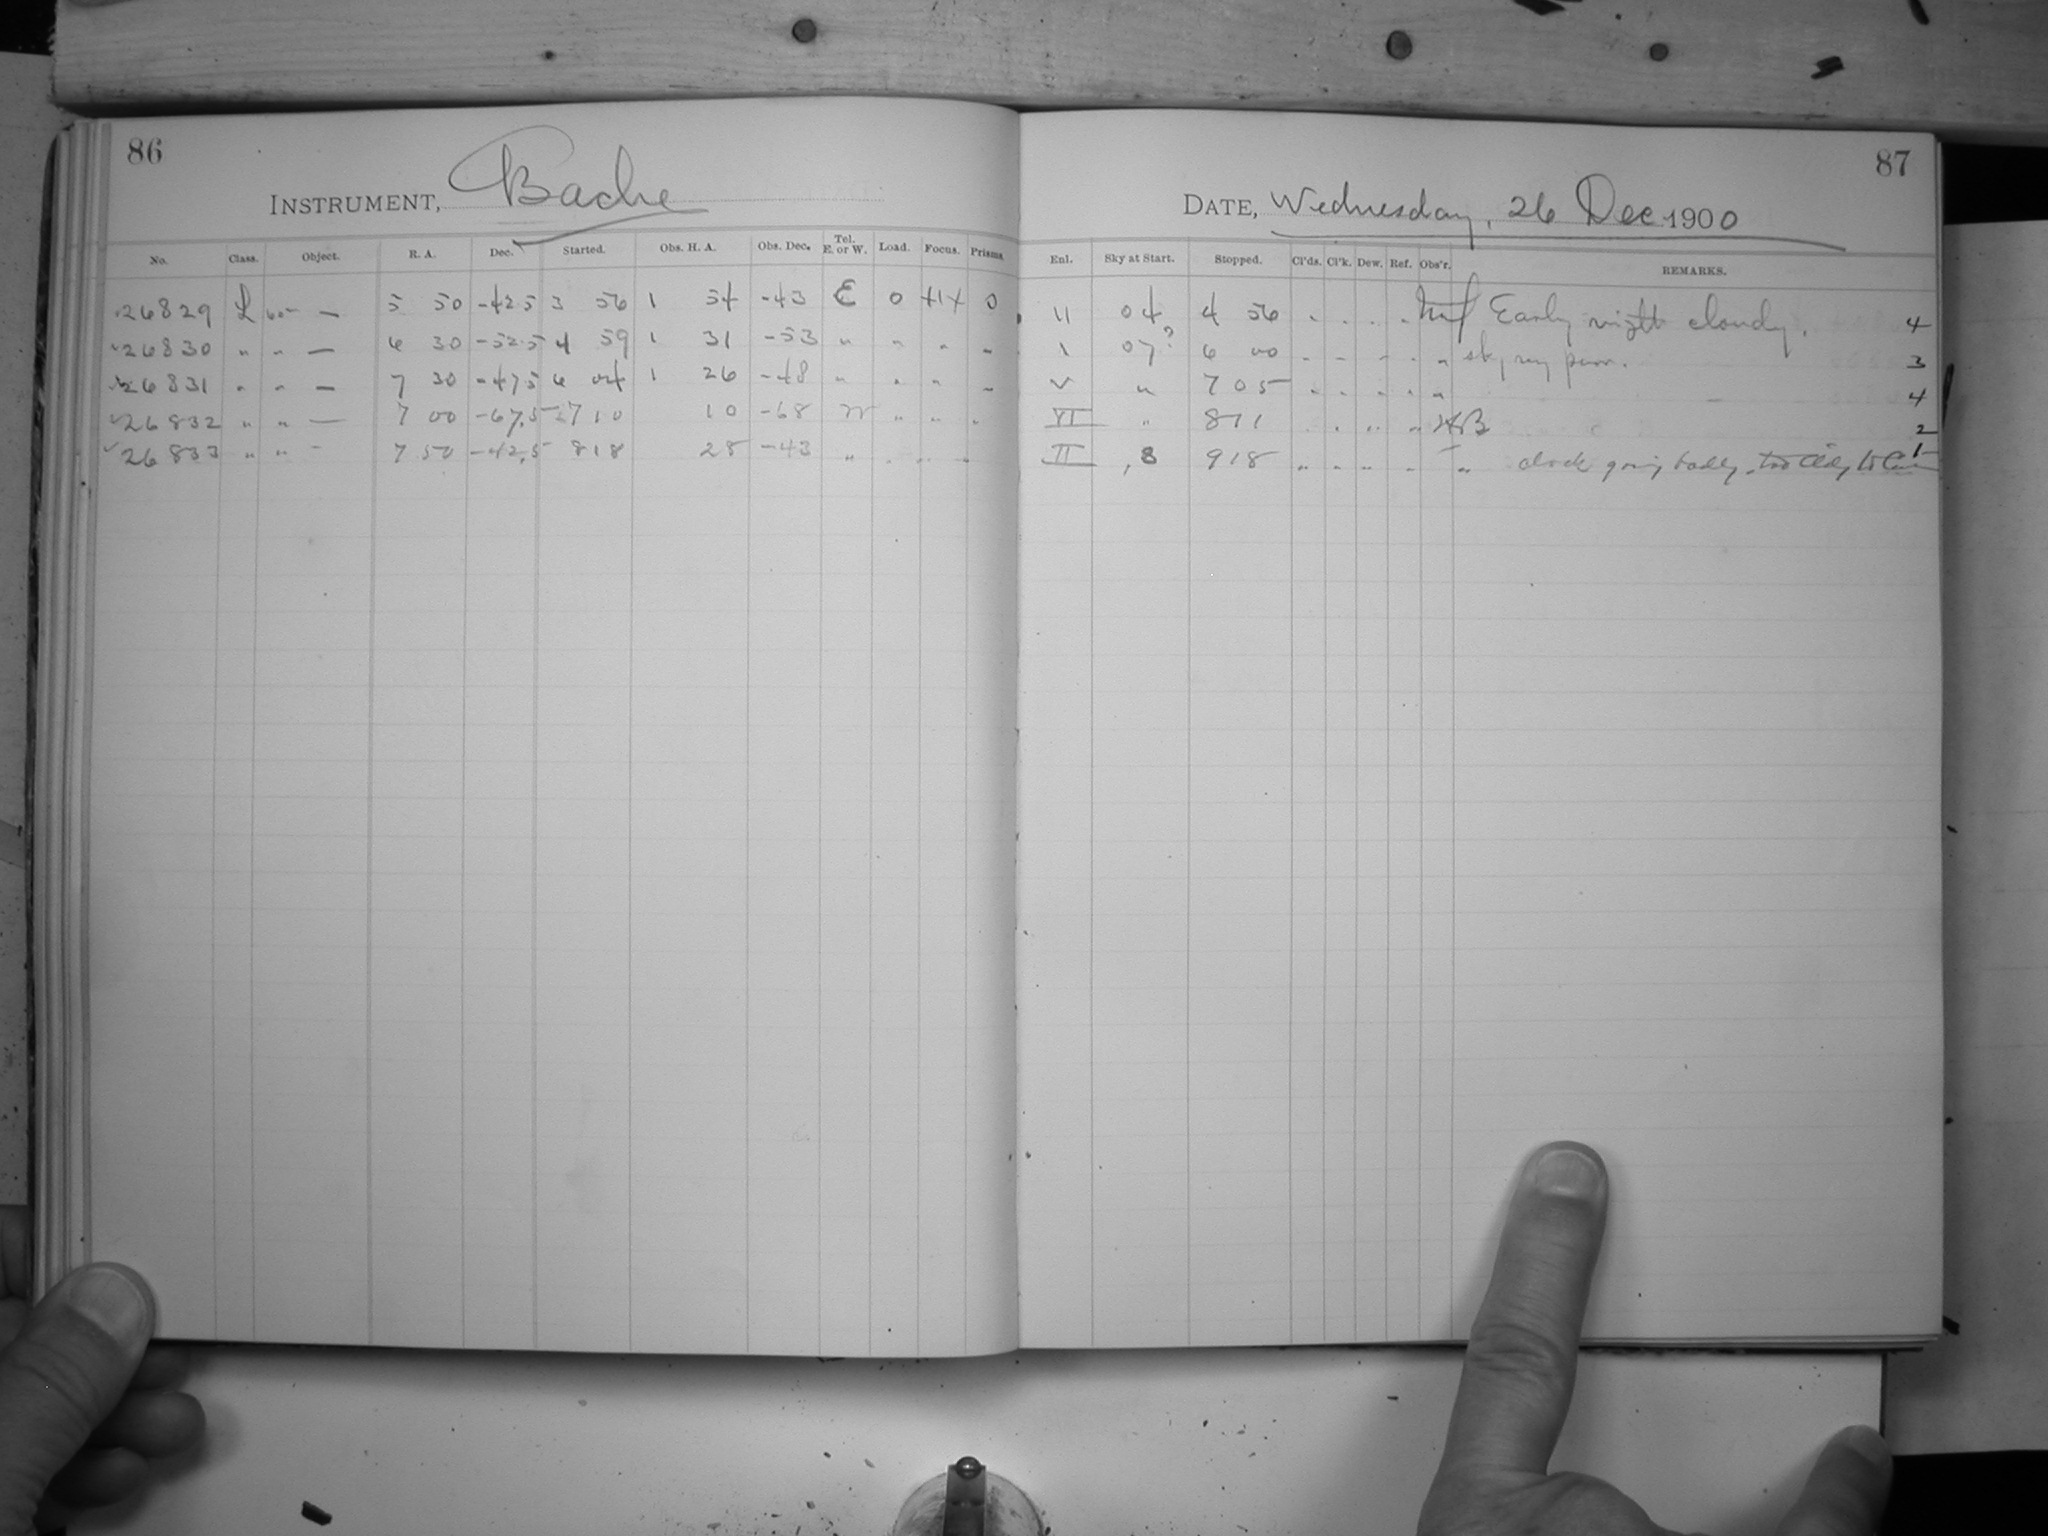 86
INSTRUMENT, Bache
No. Class. Object. R. A. Dec. Started. Obs. H. A. Obs. Dec. Tel. E. or W. Load. Focus. Prisms
26829 L 60m — 5 50 -42.5 3 56 1 54 -43 E 0 0
26830 " " — 6 30 -52.5 4 59 1 31 -53 " " " "
26831 " " — 7 30 -47.5 6 04 1 26 -48 " " " "
26832 " " — 7 00 -67.5 7 10 10 -68 W " " "
26833 " " — 7 50 -42.5 8 18 28 -43 " " " "
87
DATE, Wednesday, 26 Dec 1900
Enl. Sky at Start. Stopped. Cl'ds. Cl'k. Dew. Ref. Obs'r. REMARKS.
II 04 4 56 Early night cloudy. 4
I 07? 6 00 " sky very poor. 3
V " 7 05 " 4
VI " 8 11 2
II ,8 9 18 " " " " " clock going badly. too cldy to 1